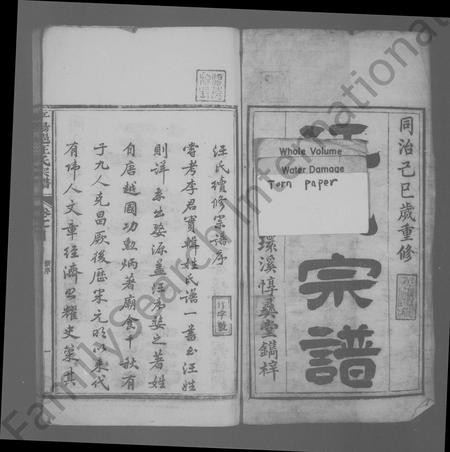 同治己巳歲重修
宗譜
環溪惇彝堂鐫梓
Whole Volume
Water Damage
Torn paper
汪氏續修宗譜序
嘗考李君實輯姓氏譜一書出汪姓
則詳系出婺源蓋汪為婺之著姓
自唐越國功勳炳著廟食千秋有
子九人克昌厥後歷宋元明以來代
有偉人文章經濟照耀史策其
FamilySearch International